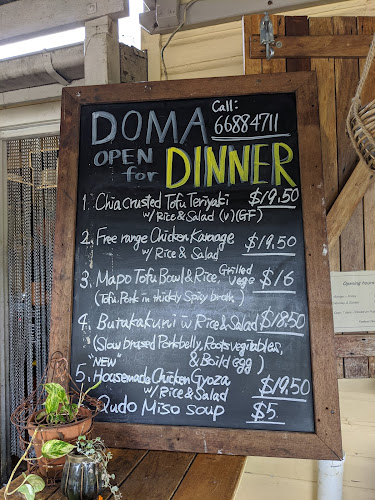 DOMA
Call:
66884711
OPEN
for DINNER
1. Chia crusted Tofu Teriyaki $19.50
w/ Rice & Salad (v)(GF)
2. Free range Chicken Karaage $19.50
w/ Rice & Salad
3. Mapo Tofu Bowl & Rice, Grilled vege $16
(Tofu, Pork in thick, Spicy broth)
4. Butakakuni w Rice & Salad $18.50
(Slow braised Pork belly, Roots vegetables,
"NEW" & Boild egg)
5. Housemade Chicken Gyoza $19.50
w/ Rice & Salad
Qudo Miso soup $5
Opening hours